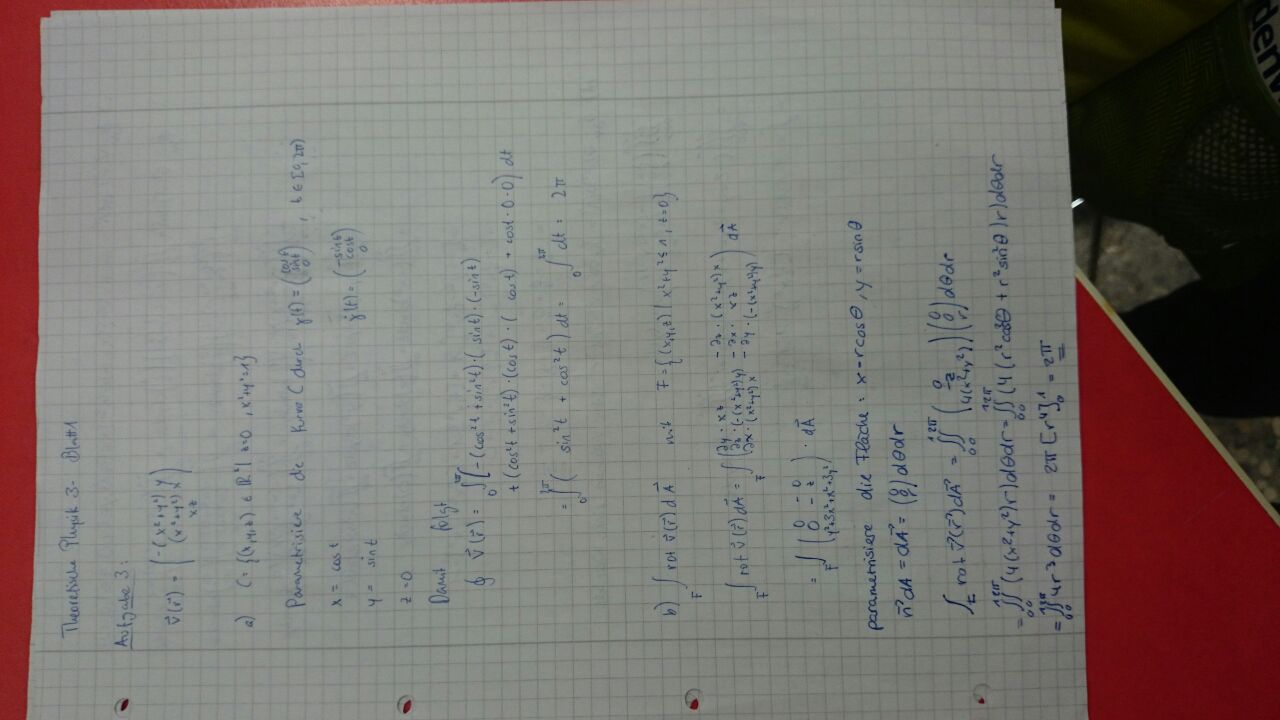 Theoretische Physik 3 - Blatt 1
Aufgabe 3:
v⃗(r⃗) = ( -(x²+y²)y ; (x²+y²)x ; xz )
a) C = {(x,y,z) ∈ ℝ³ | z=0, x²+y²=1}
Parametrisiere die Kurve C durch γ(t) = ( cos t ; sin t ; 0 ), t ∈ [0,2π)
x = cos t
y = sin t γ̇(t) = ( -sin t ; cos t ; 0 )
z = 0
Damit folgt
∮ v⃗(r⃗) = ∫₀^2π [ -(cos²t + sin²t)·(sin t)·(-sin t)
+ (cos²t + sin²t)·(cos t)·( cos t) + cos t · 0 · 0 ) dt
= ∫₀^2π ( sin²t + cos²t ) dt = ∫₀^2π dt = 2π
b) ∫_F rot v⃗(r⃗) dA⃗ mit F = {(x,y,z) | x²+y² ≤ 1, z=0}
∫_F rot v⃗(r⃗) dA⃗ = ∫_F ( ∂y · xz - ∂z · (x²+y²)x ; ∂z · (-(x²+y²)y) - ∂x · xz ; ∂x · (x²+y²)x - ∂y · (-(x²+y²)y) ) dA⃗
= ∫_F ( 0 - 0 ; 0 - z ; y²+3x²+x²+3y² ) · dA⃗
parametrisiere die Fläche : x = r cosθ, y = r sinθ
n⃗ dA = dA⃗ = ( 0 ; 0 ; r ) dθdr
∫_F rot v⃗(r⃗) dA⃗ = ∫₀^1 ∫₀^2π ( 0 ; -z ; 4(x²+y²) ) ( 0 ; 0 ; r ) dθdr
= ∫₀^1 ∫₀^2π (4(x²+y²)r) dθdr = ∫₀^1 ∫₀^2π (4(r² cos²θ + r² sin²θ)r) dθdr
= ∫₀^1 ∫₀^2π 4r³ dθdr = 2π [r⁴]₀^1 = 2π